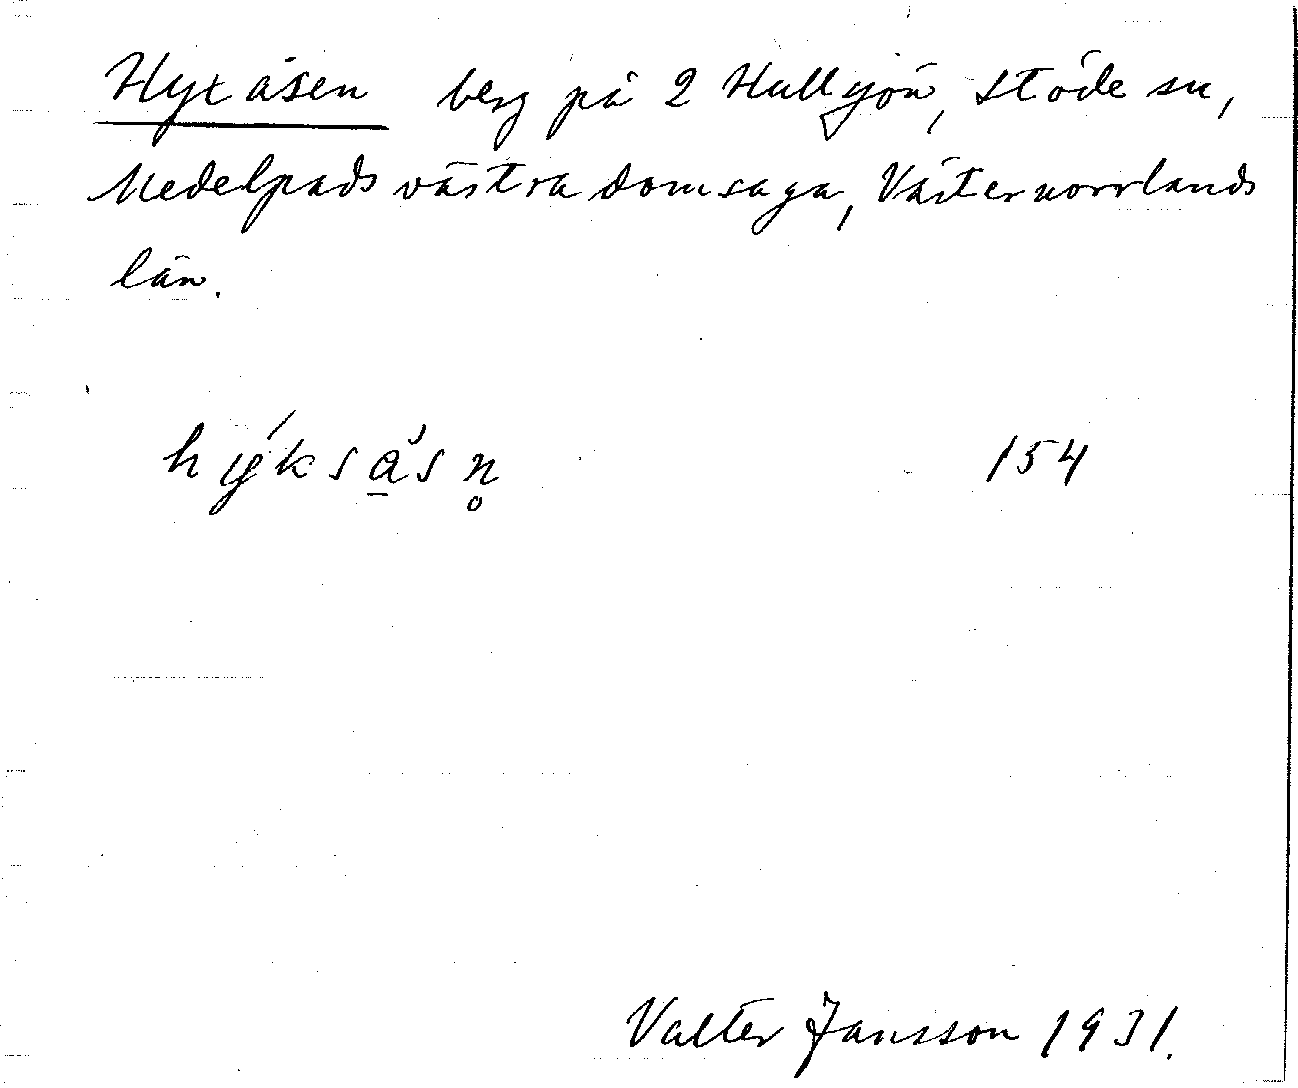 Hyxåsen berg på 2 Hullsjön, Stöde sn,
Medelpads västra domsaga, Västernorrlands
län.
hýksåsn̥ 154
Valter Jansson 1931.